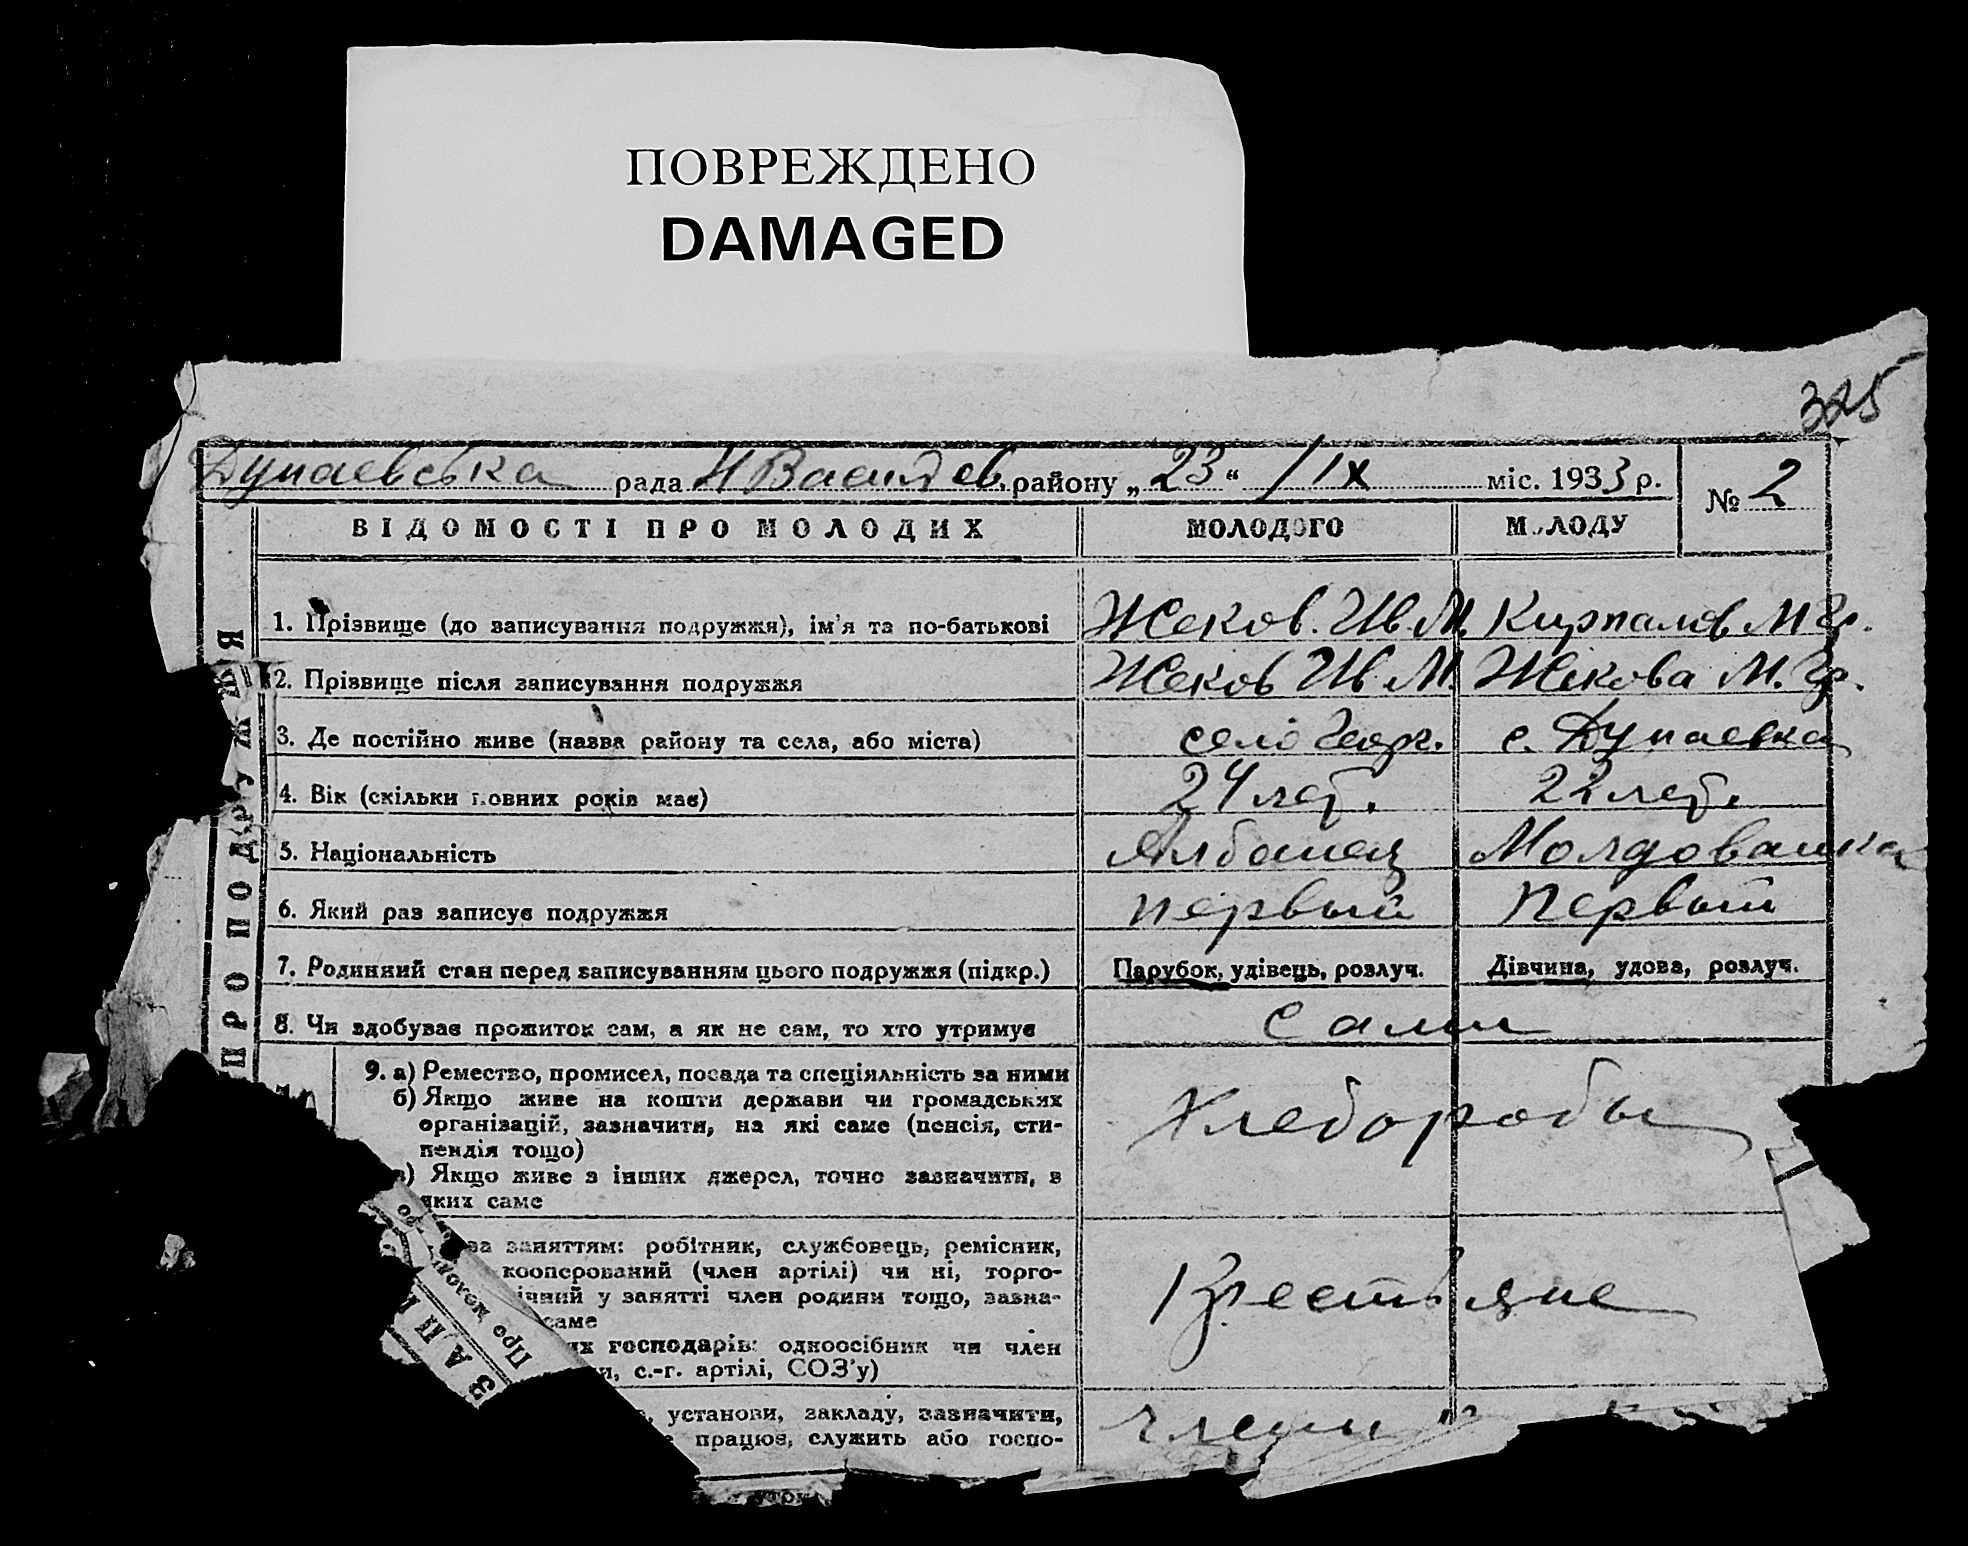 ПОВРЕЖДЕНО
DAMAGED
325
Дунаевська рада Н Василев. району „23“ /IX міс. 1933 р. № 2
ВІДОМОСТІ ПРО МОЛОДИХ МОЛОДОГО МОЛОДУ
1. Прізвище (до записування подружжя), ім'я та по-батькові Жеков. Ив М. Кирпалов М Гр.
2. Прізвище після записування подружжя Жеков Ив М. Жекова М. Гр.
3. Де постійно живе (назва району та села, або міста) село Георг. с. Дунаевка
4. Вік (скільки повних років має) 24 лет. 22 лет.
5. Національність Албанец Молдованка
6. Який раз записує подружжя первый Первый
7. Родинний стан перед записуванням цього подружжя (підкр.) Парубок, удівець, розлуч. Дівчина, удова, розлуч.
8. Чи здобуває прожиток сам, а як не сам, то хто утримує Сами
9. а) Ремество, промисел, посада та спеціяльність за ними Хлеборобы
б) Якщо живе на кошти держави чи громадських
організацій, зазначити, на які саме (пенсія, сти-
пендія тощо)
в) Якщо живе з інших джерел, точно зазначити, з
яких саме
за заняттям: робітник, службовець, ремісник,
кооперований (член артілі) чи ні, торго-
ічний у занятті член родини тощо, зазна- Крестьяне
саме
их господарів: одноосібник чи член
и, с.-г. артілі, СОЗ'у)
, установи, закладу, зазначити, члены
працює, служить або госпо-
ПРО ПОДРУЖЖЯ
ЗАП
Про молод